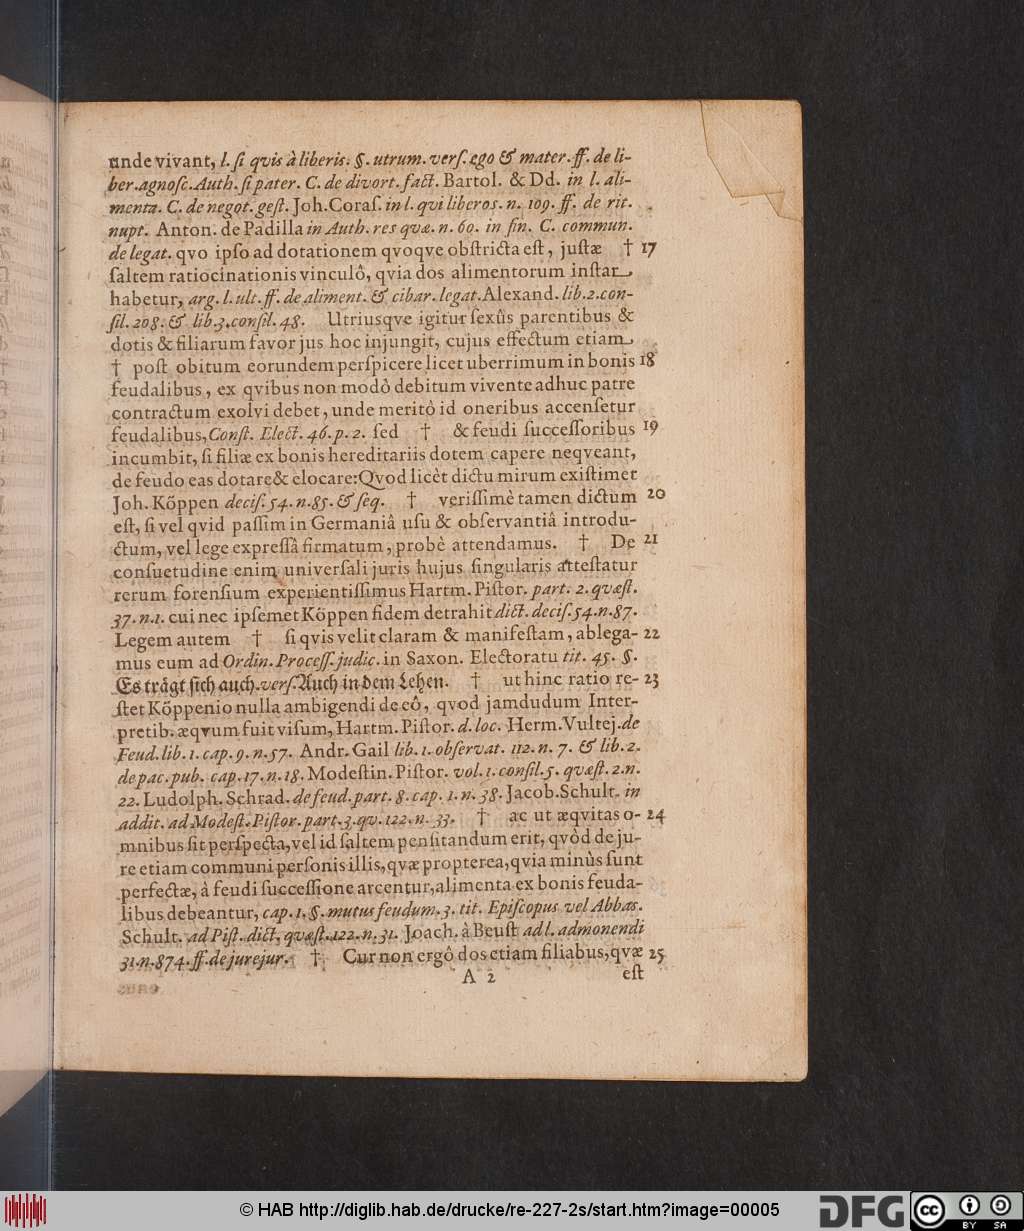 unde vivant, l. ſi qvis à liberis. §. utrum. verſ. ego & mater. ff. de li-
ber. agnoſc. Auth. ſi pater. C. de divort. fact. Bartol. & Dd. in l. ali-
menta. C. de negot. geſt. Joh. Coraſ. in l. qui liberos. n. 109. ff. de rit.
nupt. Anton. de Padilla in Auth. res quæ. n. 60. in fin. C. commun.
de legat. qvo ipſo ad dotationem qvoqve obſtricta eſt, juſtæ † 17
ſaltem ratiocinationis vinculô, qvia dos alimentorum inſtar
habetur, arg. l. ult. ff. de aliment. & cibar. legat. Alexand. lib. 2. con-
ſil. 208. & lib. 3. conſil. 48. Utriusqve igitur ſexûs parentibus &
dotis & filiarum favor jus hoc injungit, cujus effectum etiam
† poſt obitum eorundem perſpicere licet uberrimum in bonis 18
feudalibus, ex qvibus non modò debitum vivente adhuc patre
contractum exolvi debet, unde meritô id oneribus accenſetur
feudalibus, Conſt. Elect. 46. p. 2. ſed † & feudi ſucceſſoribus 19
incumbit, ſi filiæ ex bonis hereditariis dotem capere neqveant,
de feudo eas dotare & elocare: Qvod licèt dictu mirum exiſtimet
Joh. Kőppen deciſ. 54. n. 85. & ſeq. † veriſſimè tamen dictum 20
eſt, ſi vel qvid paſſim in Germaniâ uſu & obſervantiâ introdu-
ctum, vel lege expreſſâ firmatum, probè attendamus. † De 21
conſuetudine enim univerſali juris hujus ſingularis atteſtatur
rerum forenſium experientiſſimus Hartm. Piſtor. part. 2. quæſt.
37. n. 1. cui nec ipſemet Kőppen fidem detrahit dict. deciſ. 54. n. 87.
Legem autem † ſi qvis velit claram & manifeſtam, ablega- 22
mus eum ad Ordin. Proceſſ. judic. in Saxon. Electoratu tit. 45. §.
Es trågt ſich auch. verſ. Auch in dem Lehen. † ut hinc ratio re- 23
ſtet Kőppenio nulla ambigendi de eô, qvod jamdudum Inter-
pretib. æqvum fuit viſum, Hartm. Piſtor. d. loc. Herm. Vultej. de
Feud. lib. 1. cap. 9. n. 57. Andr. Gail lib. 1. obſervat. 112. n. 7. & lib. 2.
de pac. pub. cap. 17. n. 18. Modeſtin. Piſtor. vol. 1. conſil. 5. quæſt. 2. n.
22. Ludolph. Schrad. de feud. part. 8. cap. 1. n. 38. Jacob. Schult. in
addit. ad Modeſt. Piſtor. part. 3. qv. 122. n. 33. † ac ut æqvitas o- 24
mnibus ſit perſpecta, vel id ſaltem penſitandum erit, qvòd de ju-
re etiam communi perſonis illis, qvæ propterea, qvia minùs ſunt
perfectæ, à feudi ſucceſſione arcentur, alimenta ex bonis feuda-
libus debeantur, cap. 1. §. mutus feudum. 3. tit. Epiſcopus vel Abbas.
Schult. ad Piſt. dict. quæſt. 122. n. 31. Joach. à Beuſt ad l. admonendi
31. n. 874. ff. de jurejur. † Cur non ergô dos etiam filiabus, qvæ 25
A 2 eſt
© HAB http://diglib.hab.de/drucke/re-227-2s/start.htm?image=00005
DFG
cc BY SA